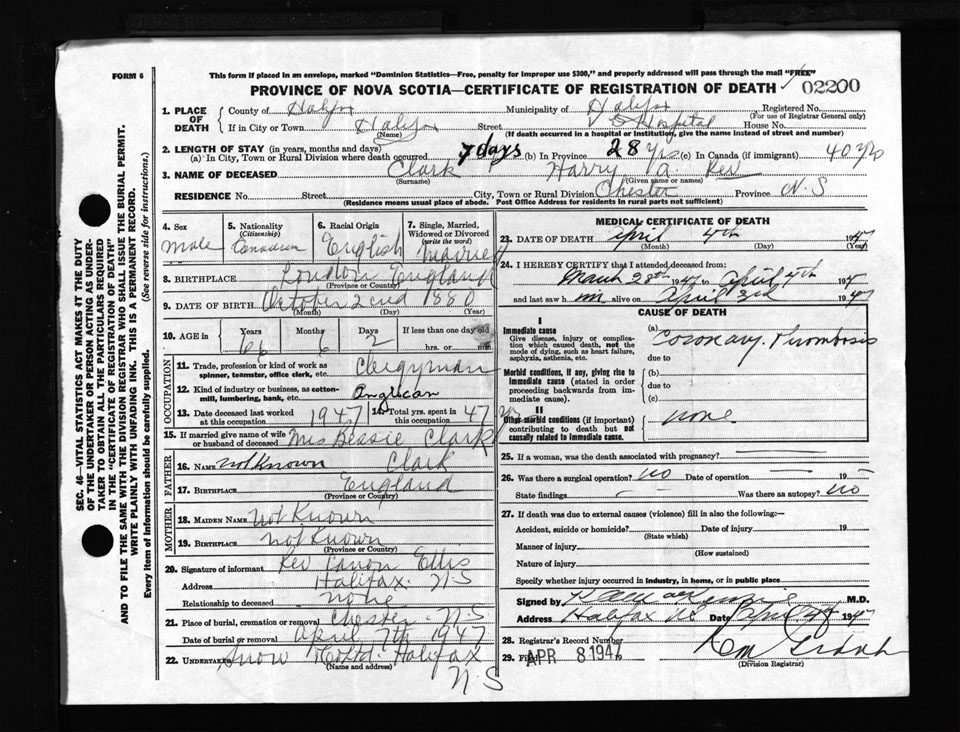 FORM 6
This form if placed in an envelope, marked "Dominion Statistics—Free, penalty for improper use $300," and properly addressed will pass through the mail "FREE"
PROVINCE OF NOVA SCOTIA—CERTIFICATE OF REGISTRATION OF DEATH 02200
1. PLACE OF DEATH County of Halifax Municipality of Halifax Registered No.
(For use of Registrar General only)
If in City or Town Halifax Street Hospital House No.
(Name) (If death occurred in a hospital or institution, give the name instead of street and number)
2. LENGTH OF STAY (in years, months and days)
(a) In City, Town or Rural Division where death occurred 7 days (b) In Province 28 yrs (c) In Canada (if immigrant) 40 yrs
3. NAME OF DECEASED Clark Harry A. Rev
(Surname) (Given name or names)
RESIDENCE No. Street City, Town or Rural Division Chester Province N.S
(Residence means usual place of abode. Post Office Address for residents in rural parts not sufficient)
4. Sex 5. Nationality (Citizenship) 6. Racial Origin 7. Single, Married, Widowed or Divorced (write the word)
Male Canadian English Married
8. BIRTHPLACE London England
(Province or Country)
9. DATE OF BIRTH October 2nd 1880
(Month) (Day) (Year)
10. AGE in Years Months Days If less than one day old
66 6 2 hrs. or min.
OCCUPATION
11. Trade, profession or kind of work as spinner, teamster, office clerk, etc. Clergyman
12. Kind of industry or business, as cotton-mill, lumbering, bank, etc. Anglican
13. Date deceased last worked at this occupation 1947 14. Total yrs. spent in this occupation 47 yrs
15. If married give name of wife or husband of deceased Mrs Bessie Clark
FATHER
16. NAME Not Known Clark
17. BIRTHPLACE England
(Province or Country)
MOTHER
18. MAIDEN NAME Not Known
19. BIRTHPLACE Not Known
(Province or Country)
20. Signature of informant Rev Canon Ellis
Address Halifax. N.S
Relationship to deceased none
21. Place of burial, cremation or removal Chester N.S
Date of burial or removal April 7th 1947
22. UNDERTAKER Snow & Co Ltd. Halifax
(Name and address)
N.S
MEDICAL CERTIFICATE OF DEATH
23. DATE OF DEATH April 4th 1947
(Month) (Day) (Year)
24. I HEREBY CERTIFY that I attended deceased from:
March 28th 1947 to April 4th 1947
and last saw him alive on April 3rd 1947
CAUSE OF DEATH
I
Immediate cause
Give disease, injury or complication which caused death, not the mode of dying, such as heart failure, asphyxia, asthenia, etc.
(a) Coronary Thrombosis
due to
Morbid conditions, if any, giving rise to immediate cause (stated in order proceeding backwards from immediate cause).
(b)
due to
(c)
II
Other morbid conditions (if important) contributing to death but not causally related to immediate cause.
none
25. If a woman, was the death associated with pregnancy?
26. Was there a surgical operation? no Date of operation 19
State findings Was there an autopsy? no
27. If death was due to external causes (violence) fill in also the following:—
Accident, suicide or homicide? Date of injury 19
(State which)
Manner of injury
(How sustained)
Nature of injury
Specify whether injury occurred in industry, in home, or in public place
Signed by M.D.
Address Halifax NS Date April 4th 1947
28. Registrar's Record Number
29. Filed APR 8 1947
(Division Registrar)
SEC. 46—VITAL STATISTICS ACT MAKES IT THE DUTY
OF THE UNDERTAKER OR PERSON ACTING AS UNDERTAKER
TO OBTAIN ALL THE PARTICULARS REQUIRED
IN THE "CERTIFICATE OF REGISTRATION OF DEATH"
AND TO FILE THE SAME WITH THE DIVISION REGISTRAR WHO SHALL ISSUE THE BURIAL PERMIT.
WRITE PLAINLY WITH UNFADING INK. THIS IS A PERMANENT RECORD.
Every item of information should be carefully supplied. (See reverse side for instructions.)